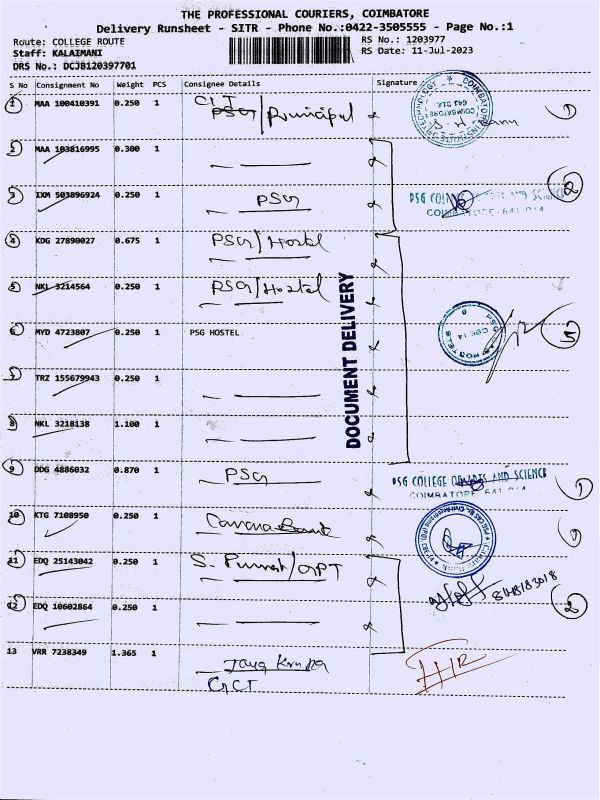 THE PROFESSIONAL COURIERS, COIMBATORE
Delivery Runsheet - SITR - Phone No.:0422-3505555 - Page No.:1
Route: COLLEGE ROUTE RS No.: 1203977
Staff: KALAIMANI RS Date: 11-Jul-2023
DRS No.: DCJB120397701
S No Consignment No Weight PCS Consignee Details Signature
1 MAA 100410391 0.250 1 CIT PSG / Principal
2 MAA 103816995 0.300 1
3 IXM 503896924 0.250 1 PSG
PSG COLLEGE OF ARTS AND SCIENCE
COIMBATORE - 641 014
4 KDG 27890027 0.675 1 PSG/Hostel
5 NKL 3214564 0.250 1 PSG/Hostel
6 MYD 4723807 0.250 1 PSG HOSTEL
7 TRZ 155679943 0.250 1
8 NKL 3218138 1.100 1
DOCUMENT DELIVERY
9 DDG 4886032 0.870 1 PSG
PSG COLLEGE OF ARTS AND SCIENCE
COIMBATORE 641 014
10 KTG 7108950 0.250 1 Canara Bank
11 EDQ 25143042 0.250 1 S. /GPT
12 EDQ 10602864 0.250 1
13 VRR 7238349 1.365 1
GCT